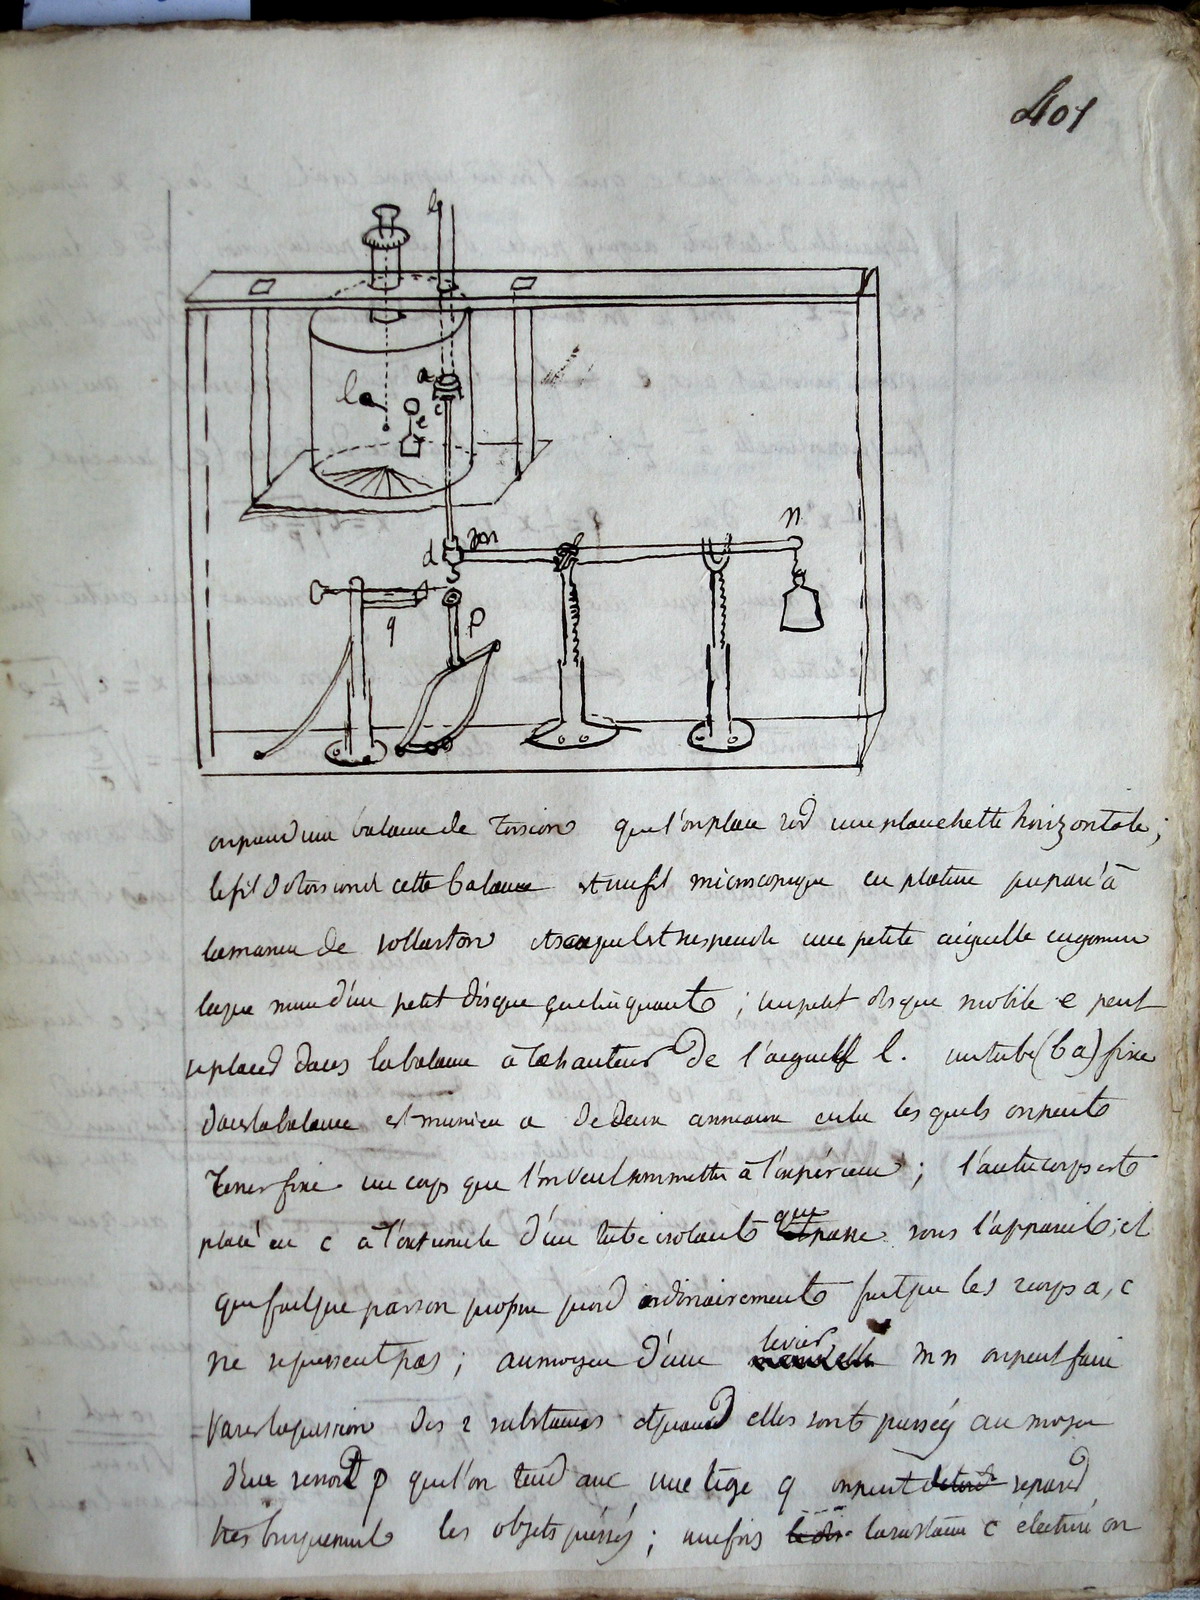 401
b
a
c
l
e
d
m
n
q
p
on prend une balance de torsion que l'on place sur une planchette horizontale;
le fil de torsion de cette balance est un fil microscopique en platine préparé à
la manière de vollaston et auquel est suspendu une petite aiguille en gomme
laque munie d'un petit disque ; un petit disque mobile e peut
se placer dans la balance à la hauteur de l'aiguille l. un tube (b a) fixé
dans la balance est muni en a de deux anneaux entre lesquels on peut
tenir fixe un corps que l'on veut soumettre à l'expérience ; l'autre corps est
placé en c à l'extrémité d'un tube isolant qui passe sous l'appareil, et
qui fait que par son propre poids ordinairement fait que les 2 corps a, c
ne se pressent pas ; au moyen d'une levier m n on peut faire
varier la pression des 2 substances et quand elles sont pressées au moyen
d'un ressort p que l'on tend avec une tige q on peut séparer
très brusquement les objets pressés ; une fois la substance c électrisé on